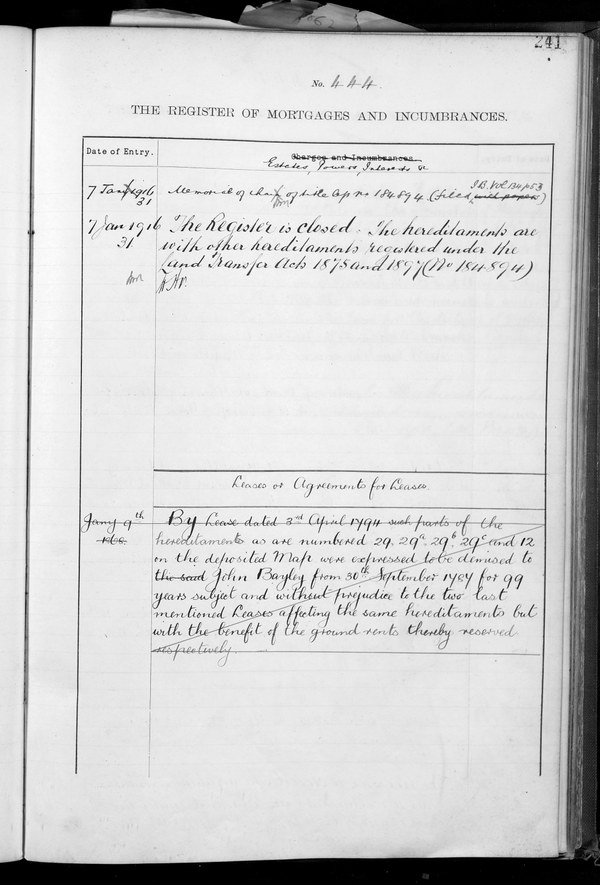 241
No. 444.
THE REGISTER OF MORTGAGES AND INCUMBRANCES.
Date of Entry.
Charges and Incumbrances.
Estates, Powers, Interests &
I.B. Vol 134 p 53
7 Jany 1916 Memorial of of title Cap no 184894 (filed, with papers)
31
7 Jan 1916 The Register is closed. The hereditaments are
31 with other hereditaments registered under the
Land Transfer Acts 1875 and 1897 (No 184894)
Leases or Agreements for Leases.
Jany 9th By Lease dated 3rd April 1794 such parts of the
hereditaments as are numbered 29, 29a, 29b 29c and 12
on the deposited Map were expressed to be demised to
the said John Bayley from 30th September 1787 for 99
years subject and without prejudice to the two last
mentioned Leases affecting the same hereditaments but
with the benefit of the ground rents thereby reserved
respectively.